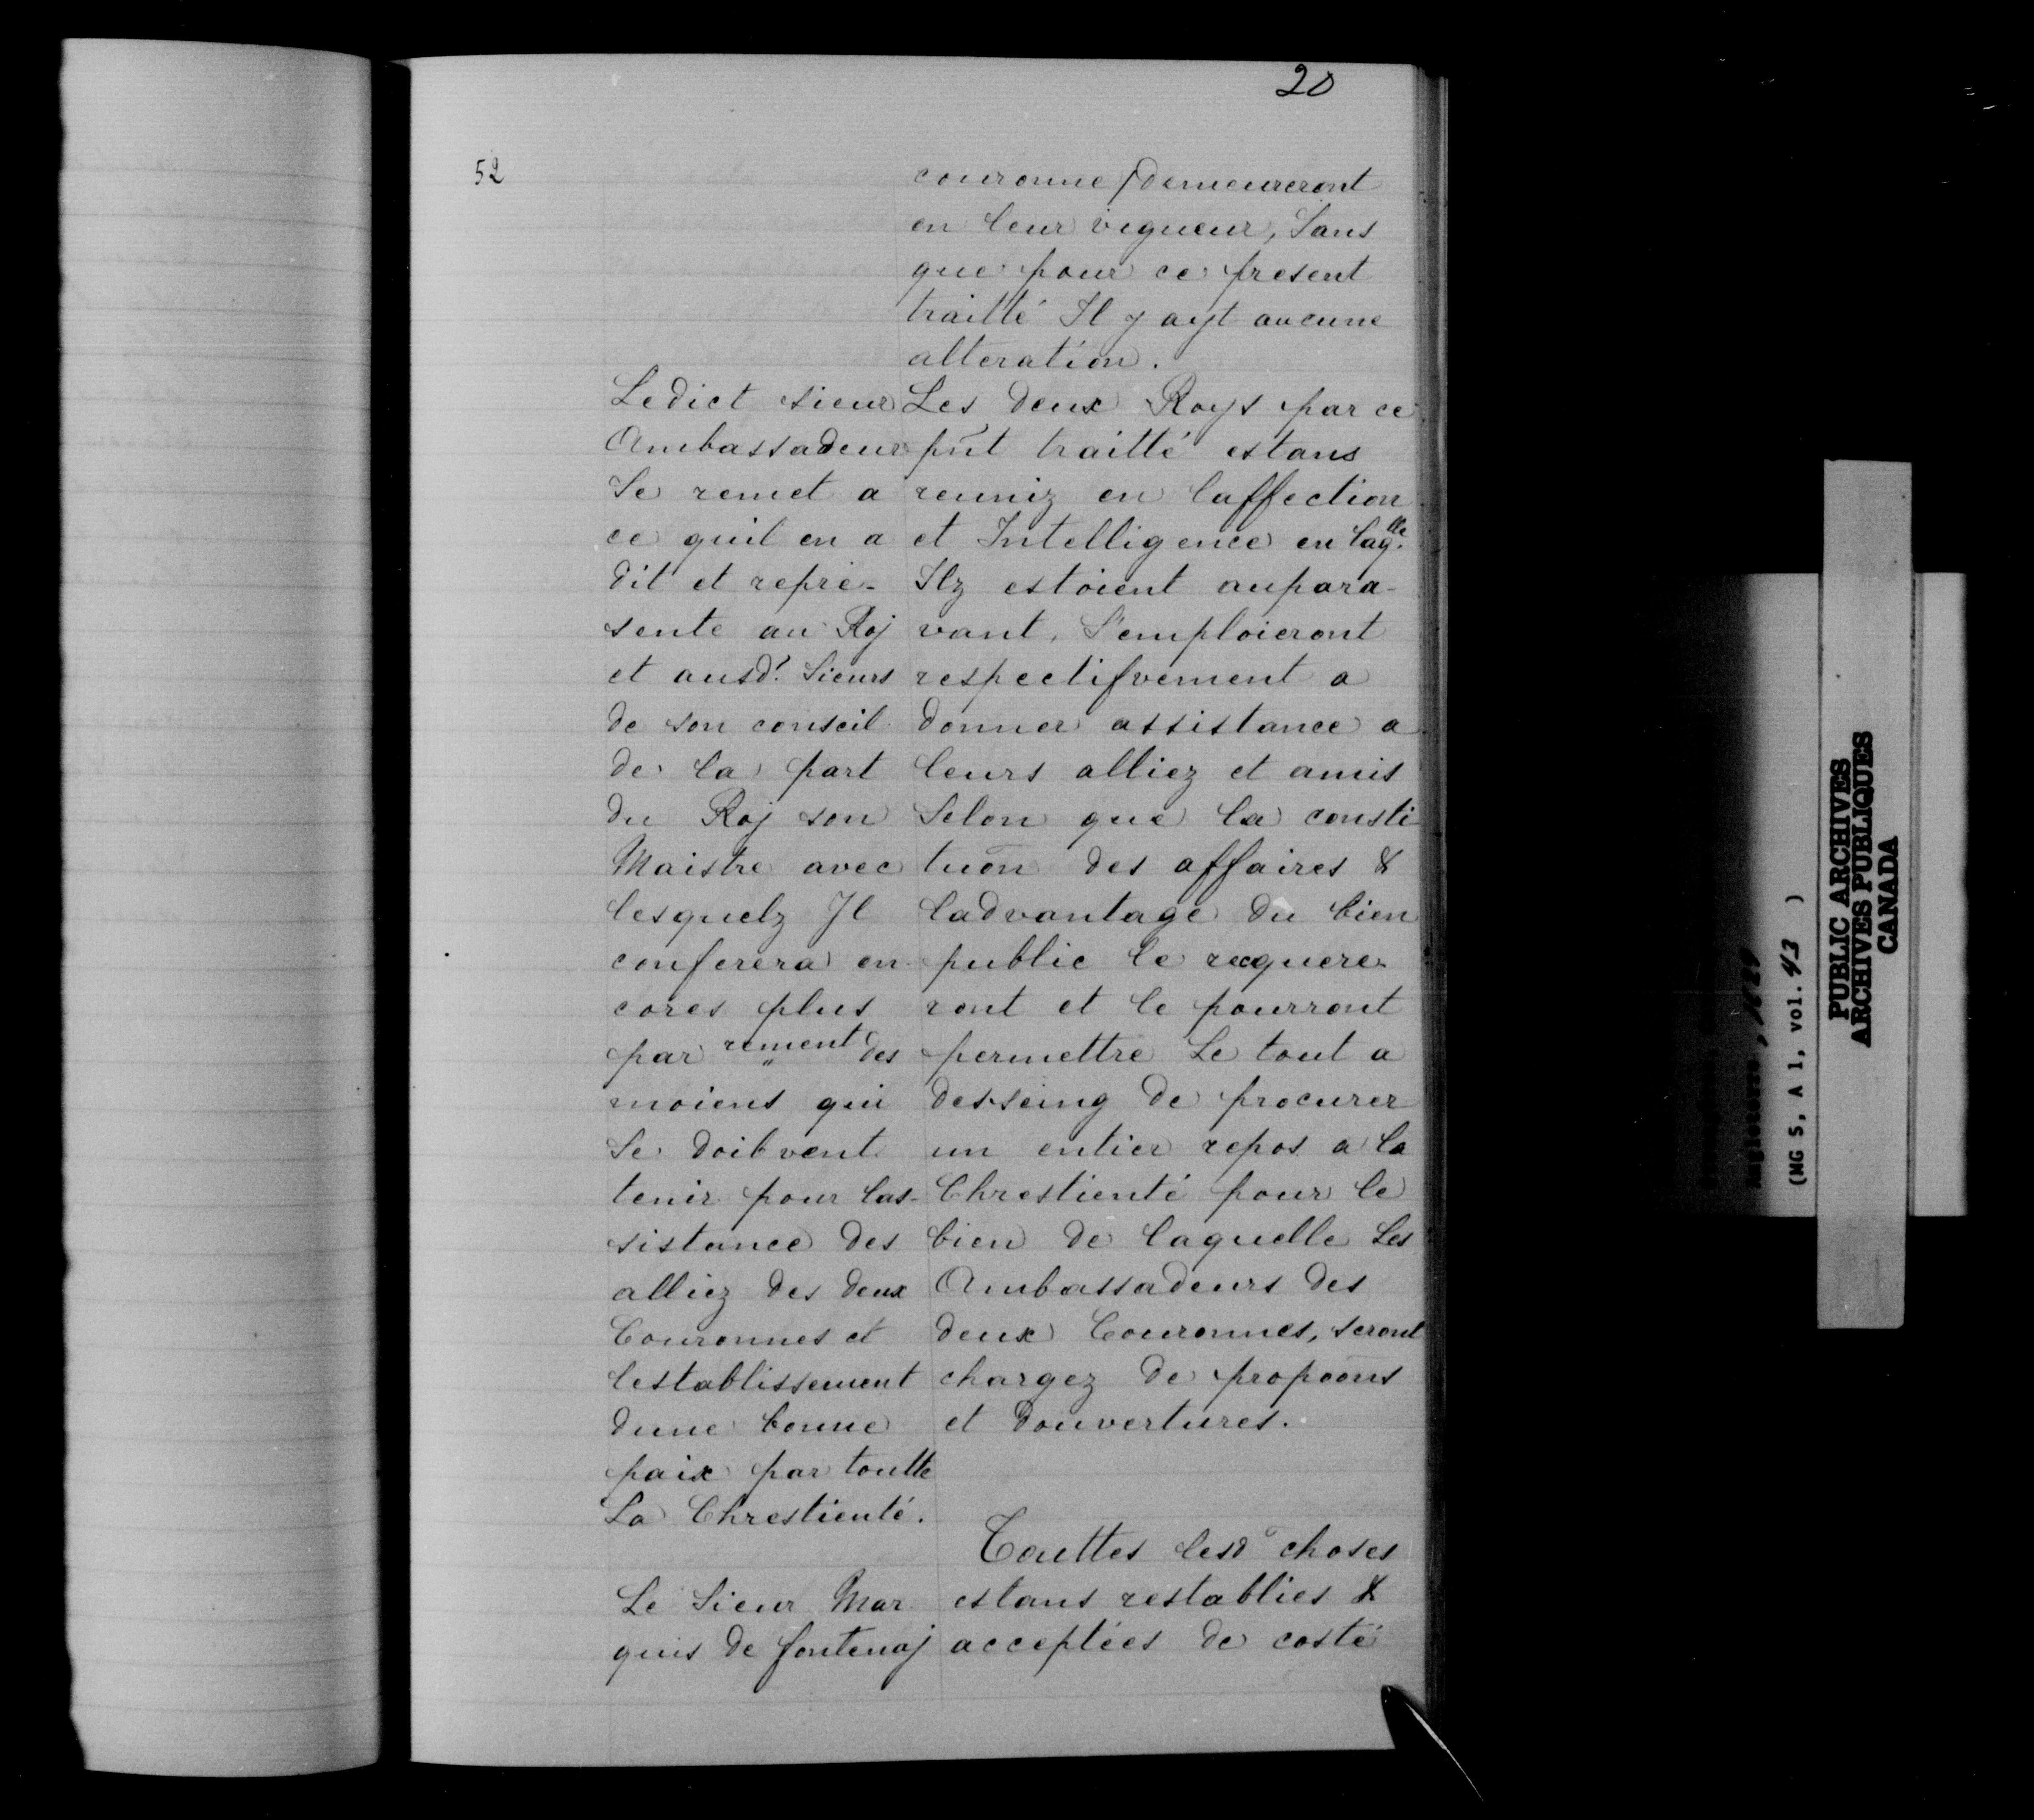 20
52
couronne / demeureront
en leur vigueur, Sans
que pour ce present
traitté Il y ayt aucune
alteration.
Ledict sieur
Ambassadeur
Se remet a
ce quil en a
dit et repre-
sente au Roj
et ausd. Sieurs
de son conseil
de la part
du Roj son
Maistre avec
lesquelz Jl
conferera en
cores plus
par rement des
moiens qui
Se doibvent
tenir pour las-
sistance des
alliez des deux
Couronnes et
lestablissement
dune bonne
paix par toutte
La Chrestienté.
Les deux Roys par ce
pñt traitté estans
reuniz en laffection
et Intelligence en laqlle
Ilz estoient aupara-
vant, S'emploieront
respectifvement a
donner assistance a
leurs alliez et amis
Selon que la consti
tuõn des affaires &
ladvantage du bien
public le requere-
ront et le pourront
permettre Le tout a
desseing de procurer
un entier repos a la
Chrestienté pour le
bien de laquelle Les
Ambassadeurs des
deux Couronnes, seront
chargez de propoõns
et douvertures.
Le Sieur Mar
quis de fontenaj
Touttes lesd choses
estans restablies &
acceptées de costé
Angleterre, 1629
(MG 5, A 1, vol. 43 )
PUBLIC ARCHIVES
ARCHIVES PUBLIQUES
CANADA